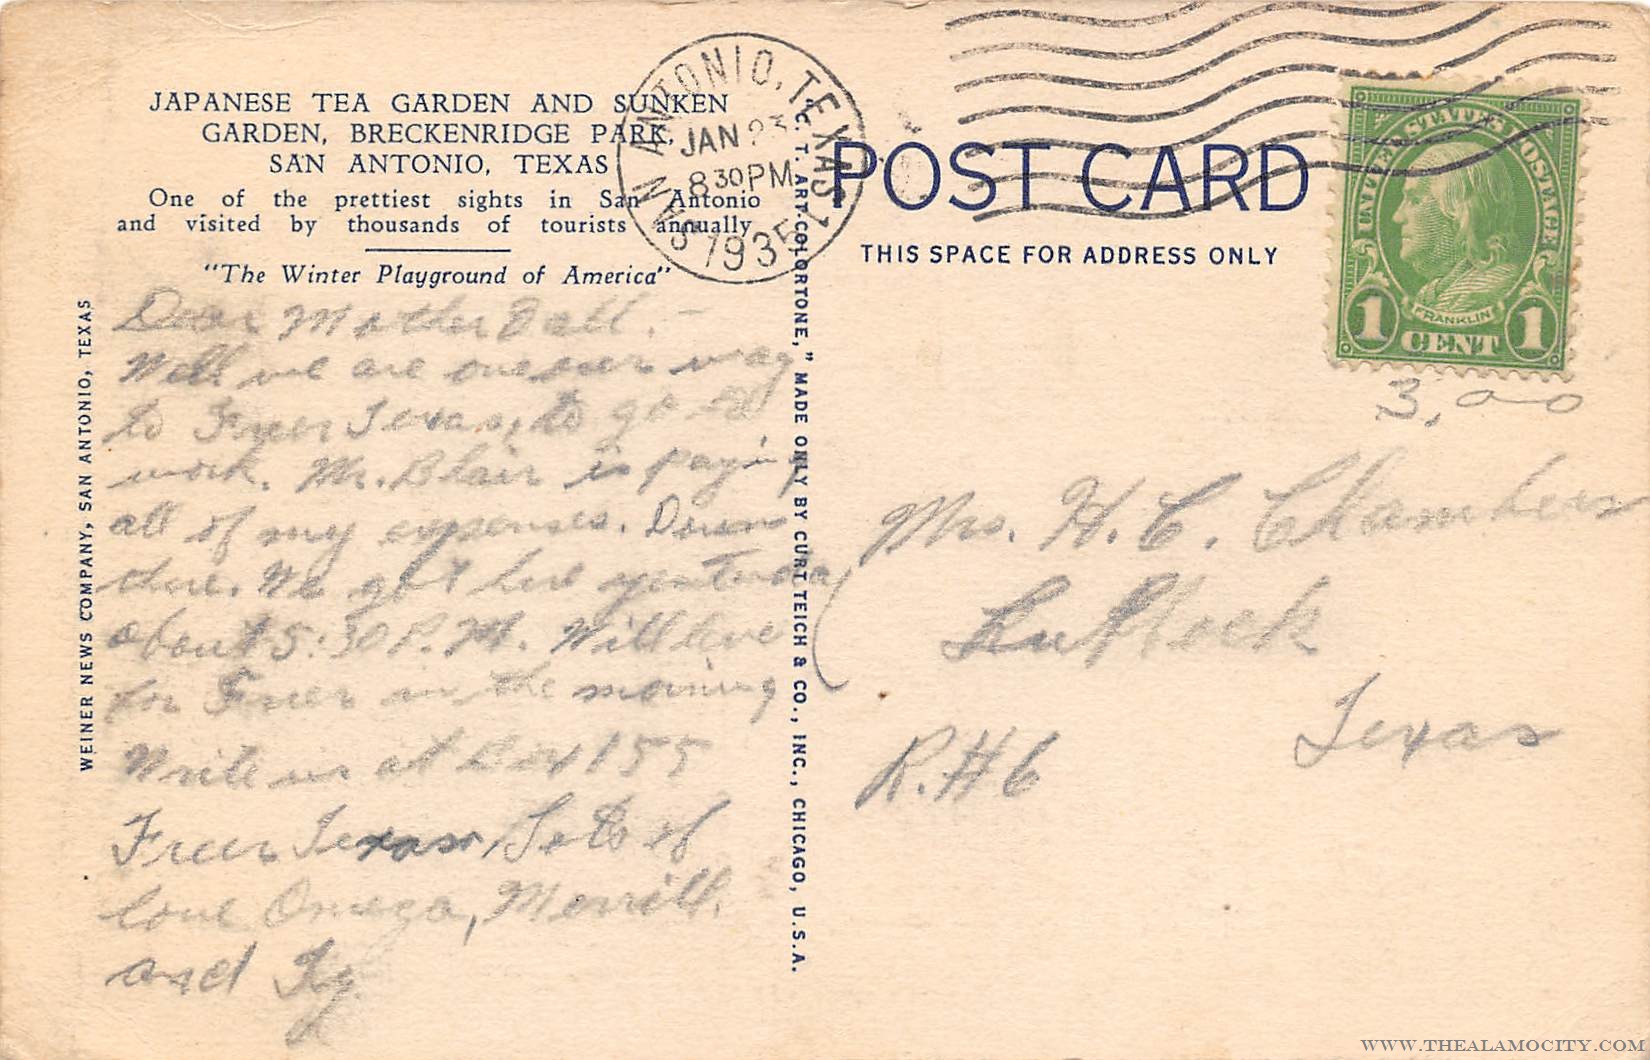 JAPANESE TEA GARDEN AND SUNKEN
GARDEN, BRECKENRIDGE PARK,
SAN ANTONIO, TEXAS
One of the prettiest sights in San Antonio
and visited by thousands of tourists annually
"The Winter Playground of America"
WEINER NEWS COMPANY, SAN ANTONIO, TEXAS
Dear Mother &all. –
Well we are on our way
to Freer Texas, to go to
work. Mr. Blair is paying
all of my expenses. Down
there. We got here yesterday
about 5:30 P.M. Will live
for Freer in the morning
Write us at Box 155
Freer Texas, Lots of
love Omega, Merrill.
and
SAN ANTONIO, TEXAS 1
JAN 23
8 30 PM
1935
C. T. ART-COLORTONE," MADE ONLY BY CURT TEICH & CO., INC., CHICAGO, U.S.A.
POST CARD
THIS SPACE FOR ADDRESS ONLY
UNITED STATES POSTAGE
FRANKLIN
1 CENT 1
3.00
Mrs. H. C. Chambers
Lubbock
Texas
R.#6
WWW.THEALAMOCITY.COM